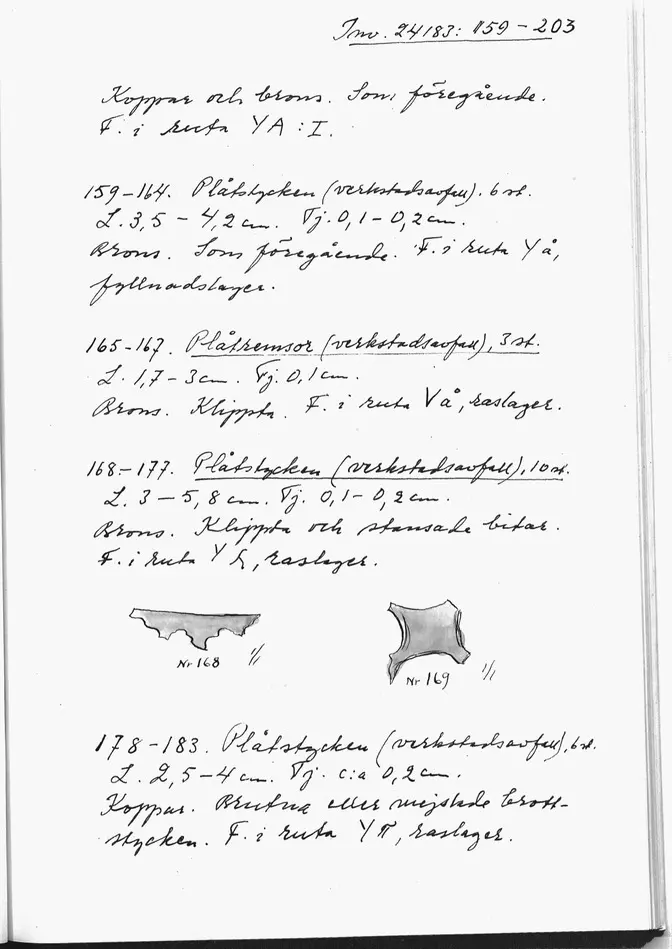 Inv. 24183: 159 – 203
Koppar och brons. Som föregående.
F. i ruta YA : I.
159–164. Plåtstycken (verkstadsavfall). 6 st.
L. 3,5 – 4,2 cm. Tj. 0,1 – 0,2 cm.
Brons. Som föregående. F. i ruta Yå,
fyllnadslager.
165–167. Plåtremsor (verkstadsavfall), 3 st.
L. 1,7 – 3 cm. Tj. 0,1 cm.
Brons. Klippta. F. i ruta Vå, raslager.
168–177. Plåtstycken (verkstadsavfall), 10 st.
L. 3 – 5,8 cm. Tj. 0,1 – 0,2 cm.
Brons. Klippta och stansade bitar.
F. i ruta Y, raslager.
Nr 168 1/1
Nr 169 1/1
178–183. Plåtstycken (verkstadsavfall), 6 st.
L. 2,5 – 4 cm. Tj. c:a 0,2 cm.
Koppar. Brutna eller mejslade brott-
stycken. F. i ruta Yπ, raslager.